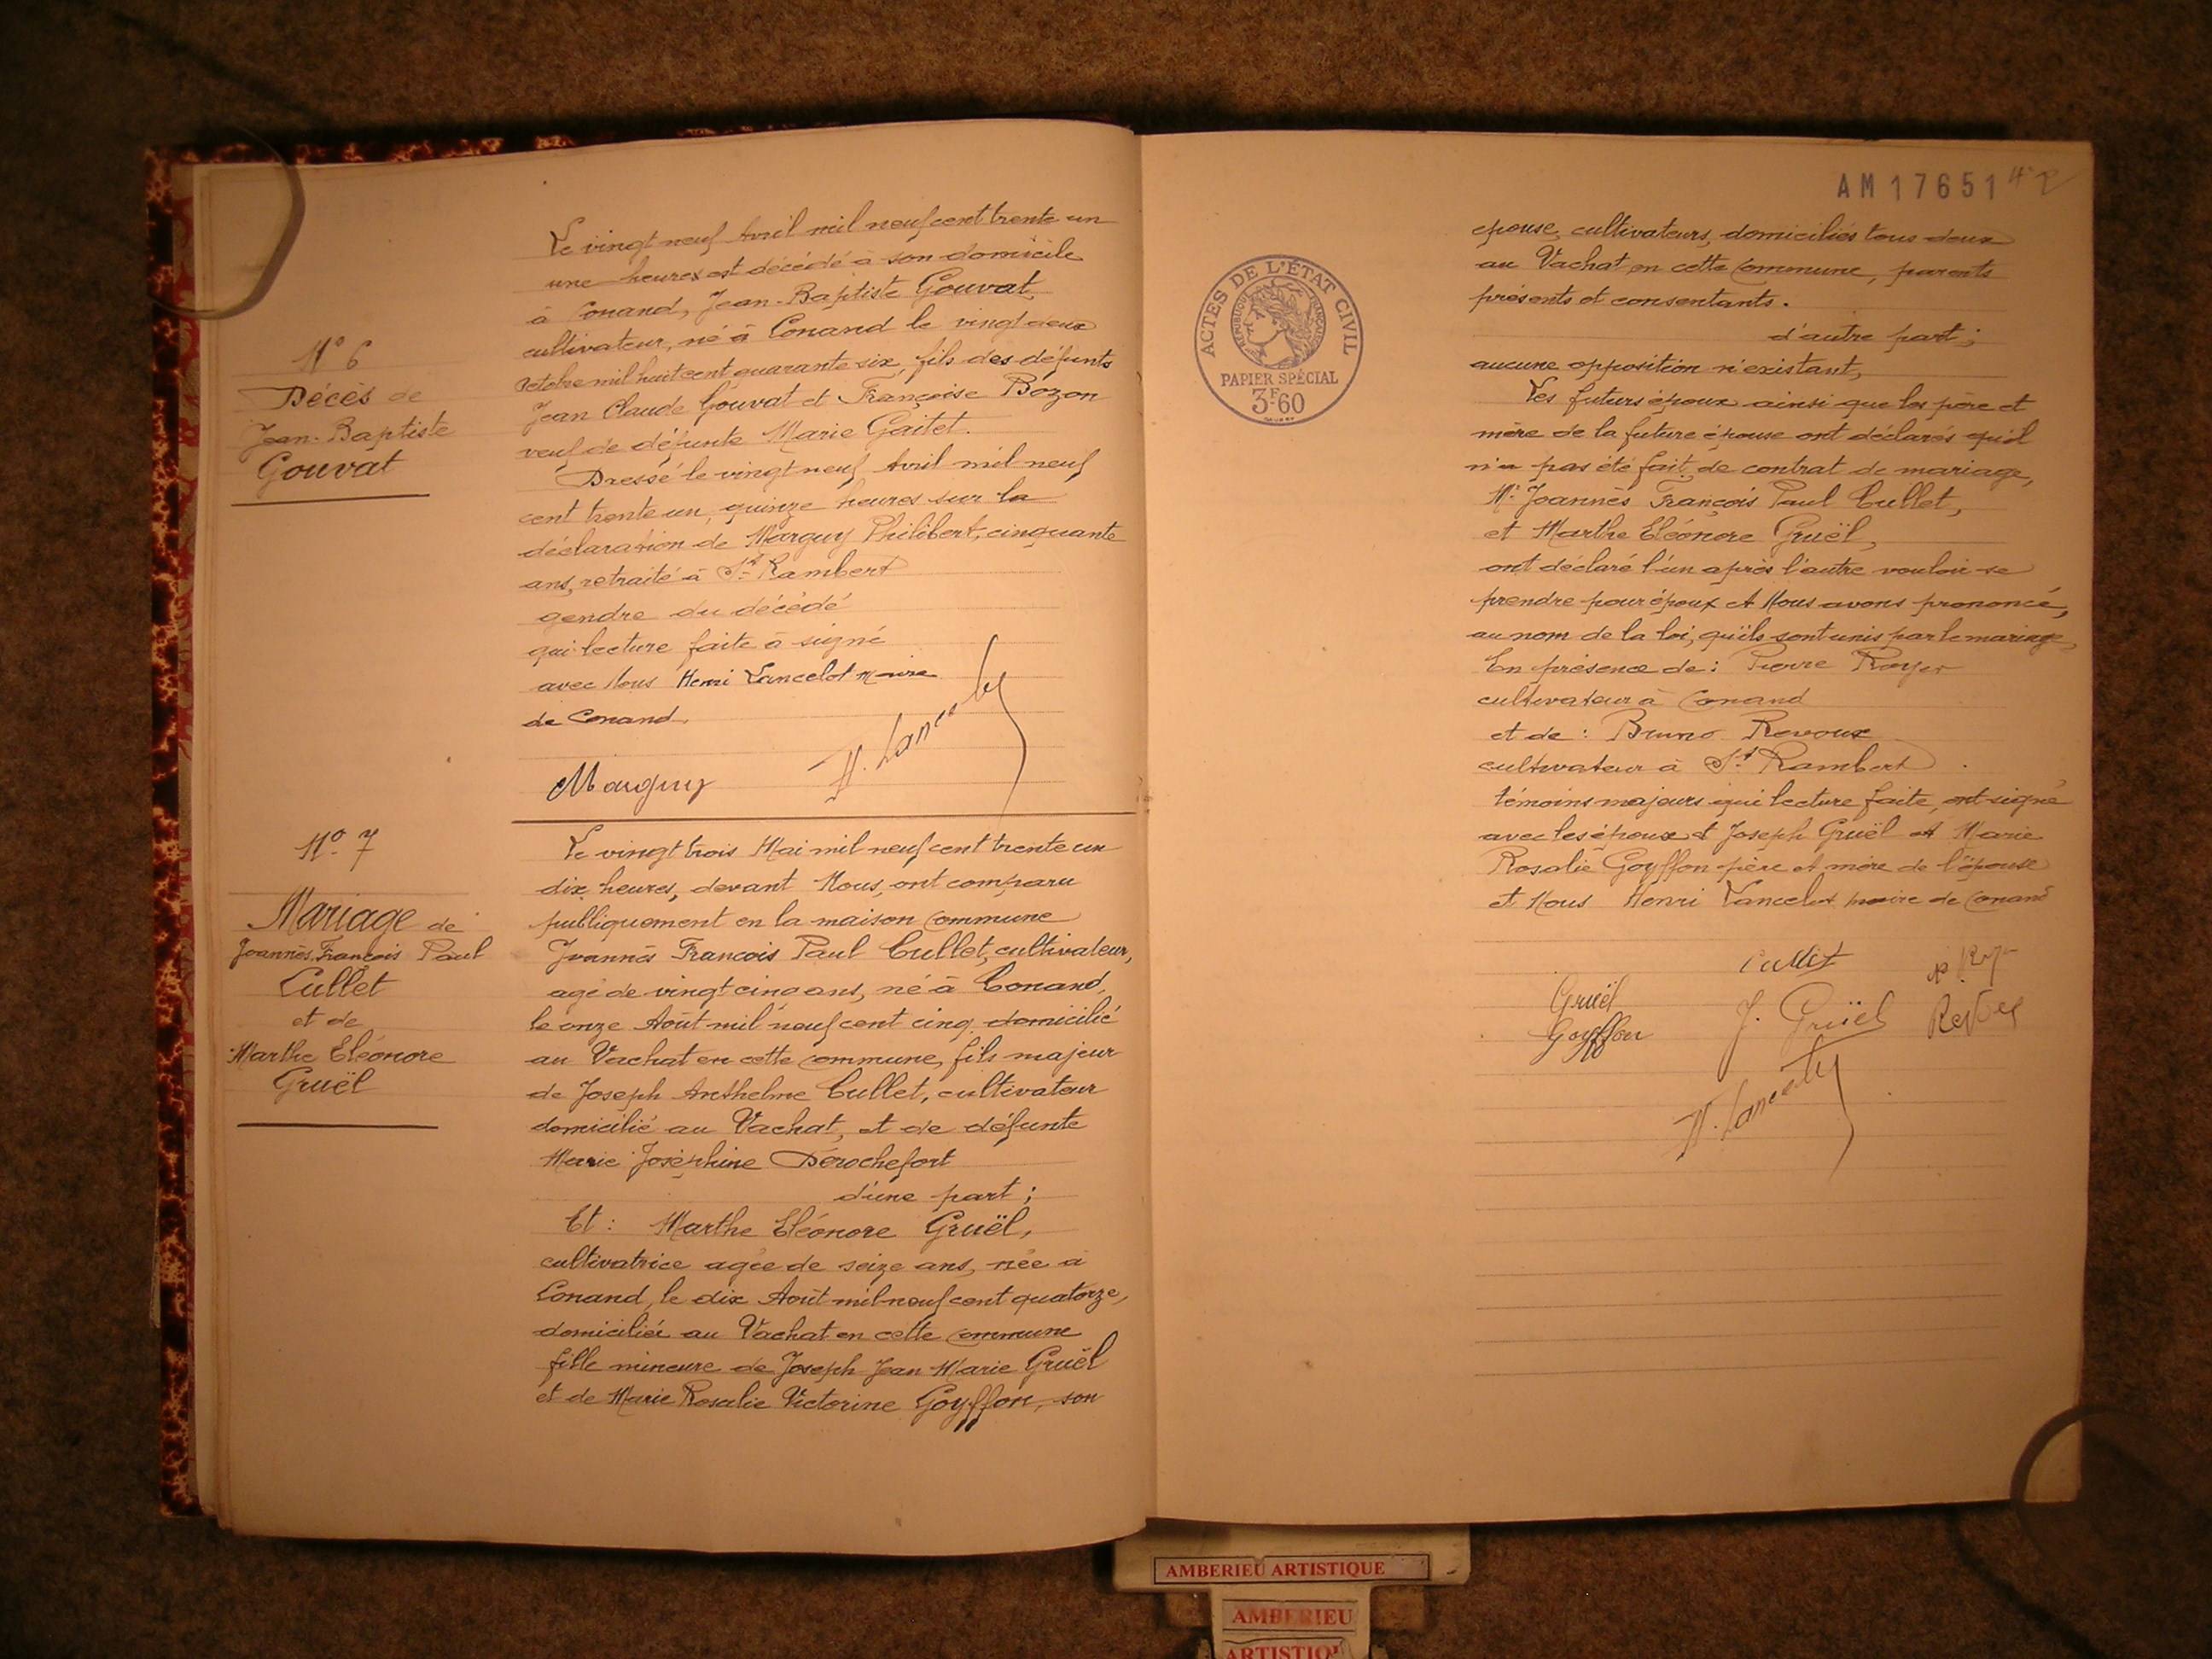 Le vingt neuf Avril mil neuf cent trente un
une heures est décédé à son domicile
à Conand, Jean-Baptiste Gouvat,
cultivateur, né à Conand le vingt deux
Octobre mil huit cent quarante six, fils des défunts
Jean Claude Gouvat et Françoise Bozon
veuf de défunte Marie Gaitet.
Dressé le vingt neuf Avril mil neuf
cent trente un, quinze heures sur la
déclaration de Marguy Philibert, cinquante
ans, retraité à St Rambert
gendre du décédé
qui lecture faite à signé
avec Nous Henri Lancelot maire
de Conand.
Marguy
H. Lancelot
N° 6
Décès de
Jean-Baptiste
Gouvat
N° 7
Mariage de
Joannès François Paul
Cullet
et de
Marthe Eléonore
Gruël
Le vingt trois Mai mil neuf cent trente un
dix heures, devant Nous, ont comparu
publiquement en la maison commune
Joannès François Paul Cullet, cultivateur,
agé de vingt cinq ans, né à Conand,
le onze Août mil neuf cent cinq, domicilié
au Vachat en cette commune, fils majeur
de Joseph Anthelme Cullet, cultivateur
domicilié au Vachat, et de défunte
Marie Joséphine Dérochefort
d'une part ;
Et : Marthe Eléonore Gruël,
cultivatrice agée de seize ans, née à
Conand, le dix Août mil neuf cent quatorze,
domiciliée au Vachat en cette commune
fille mineure de Joseph Jean Marie Gruël
et de Marie Rosalie Victorine Goyffon, son
AM 17651
ACTES DE L'ÉTAT CIVIL
RÉPUBLIQUE FRANÇAISE
PAPIER SPÉCIAL
3F60
épouse, cultivateurs, domiciliés tous deux
au Vachat en cette commune, parents
présents et consentants.
d'autre part ;
aucune opposition n'existant,
Les futurs époux ainsi que les père et
mère de la future épouse ont déclarés qu'il
n'a pas été fait de contrat de mariage,
Mr Joannès François Paul Cullet,
et Marthe Eléonore Gruël,
ont déclaré l'un après l'autre vouloir se
prendre pour époux et Nous avons prononcé,
au nom de la loi, qu'ils sont unis par le mariage,
En présence de : Pierre Royer
cultivateur à Conand
et de : Bruno Revoux
cultivateur à St Rambert
témoins majeurs qui lecture faite, ont signé
avec les époux et Joseph Gruël et Marie
Rosalie Goyffon père et mère de l'épouse
et Nous Henri Lancelot maire de Conand
Cullet
Gruël
J. Gruël
Goyffon
H. Lancelot
AMBERIEU ARTISTIQUE
AMBERIEU